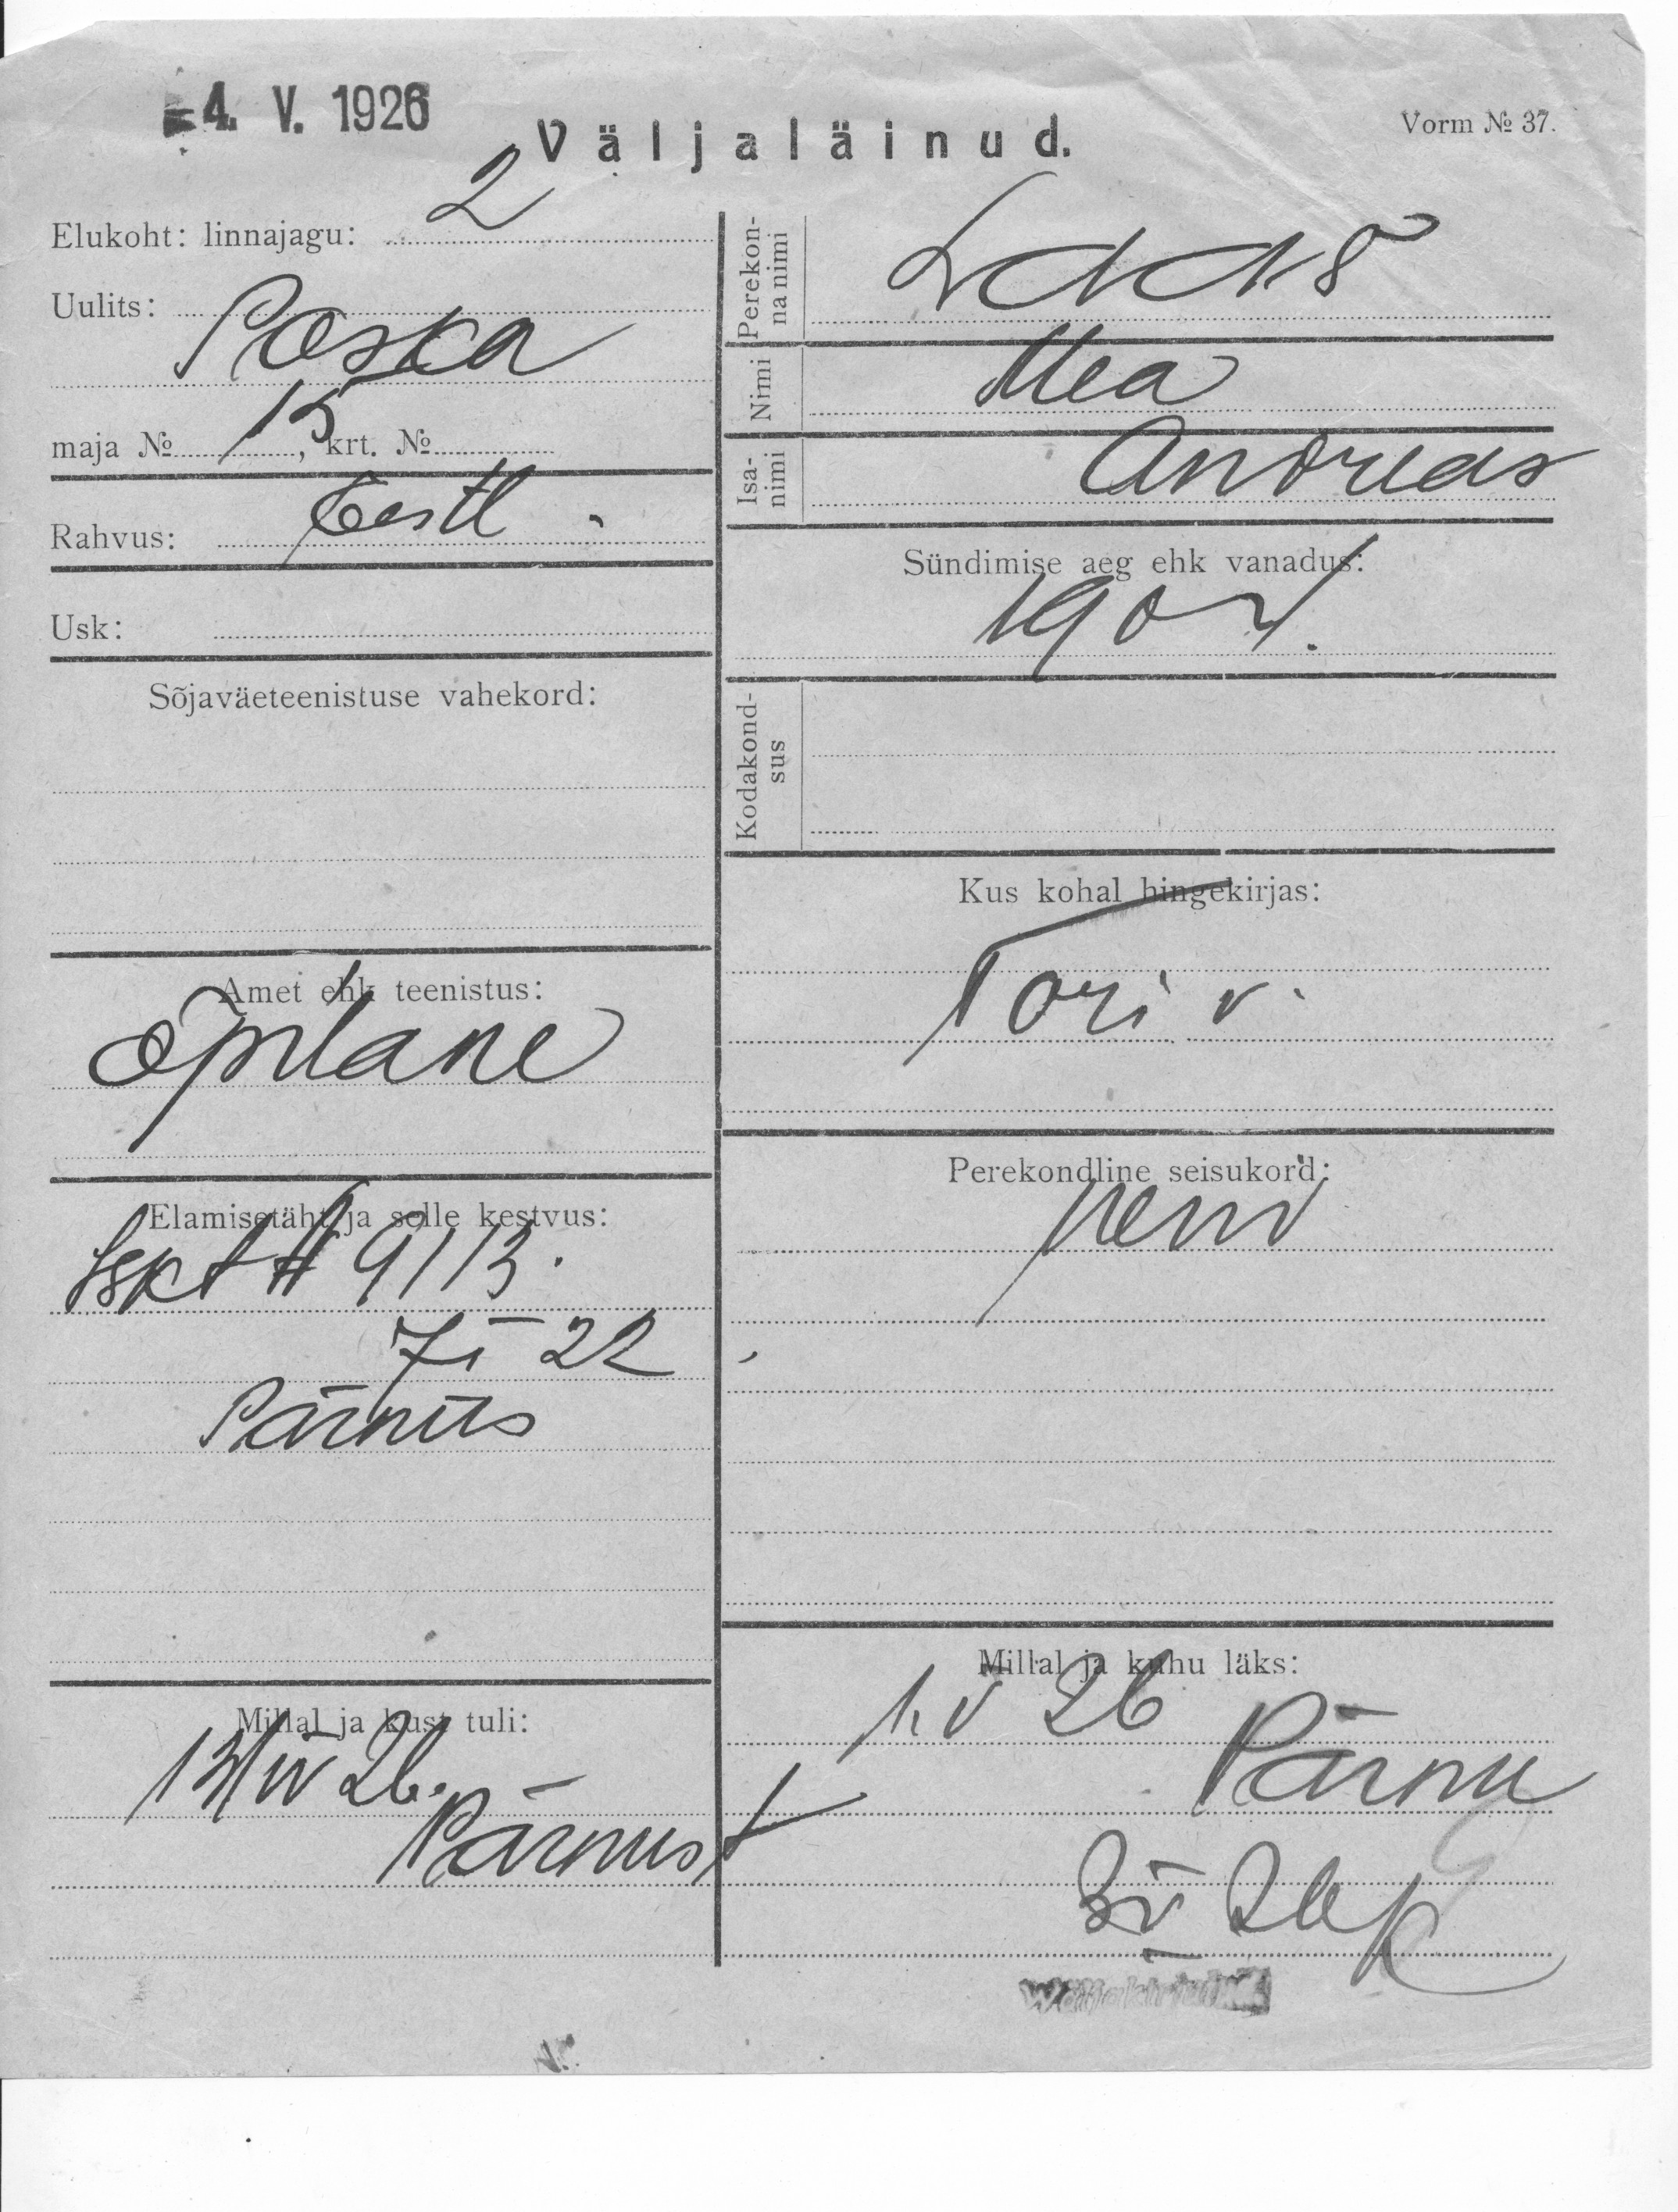 4. V. 1926
Väljaläinud.
Vorm № 37.
Elukoht: linnajagu: 2
Uulits:
Poska
maja № 15, krt. №
Rahvus: Eestl.
Usk:
Sõjaväeteenistuse vahekord:
Amet ehk teenistus:
õpilane
Elamisetäht ja selle kestvus:
Iskt # 9113.
7 I 22
Pärnus
Millal ja kust tuli:
13/IV 26.
Pärnust
Perekonna nimi
Nimi
Isanimi Andreas
Sündimise aeg ehk vanadus:
1904.
Kodakondsus
Kus kohal hingekirjas:
Tori v.
Perekondline seisukord:
Millal ja kuhu läks:
1. V 26
Pärnu
3 V 26